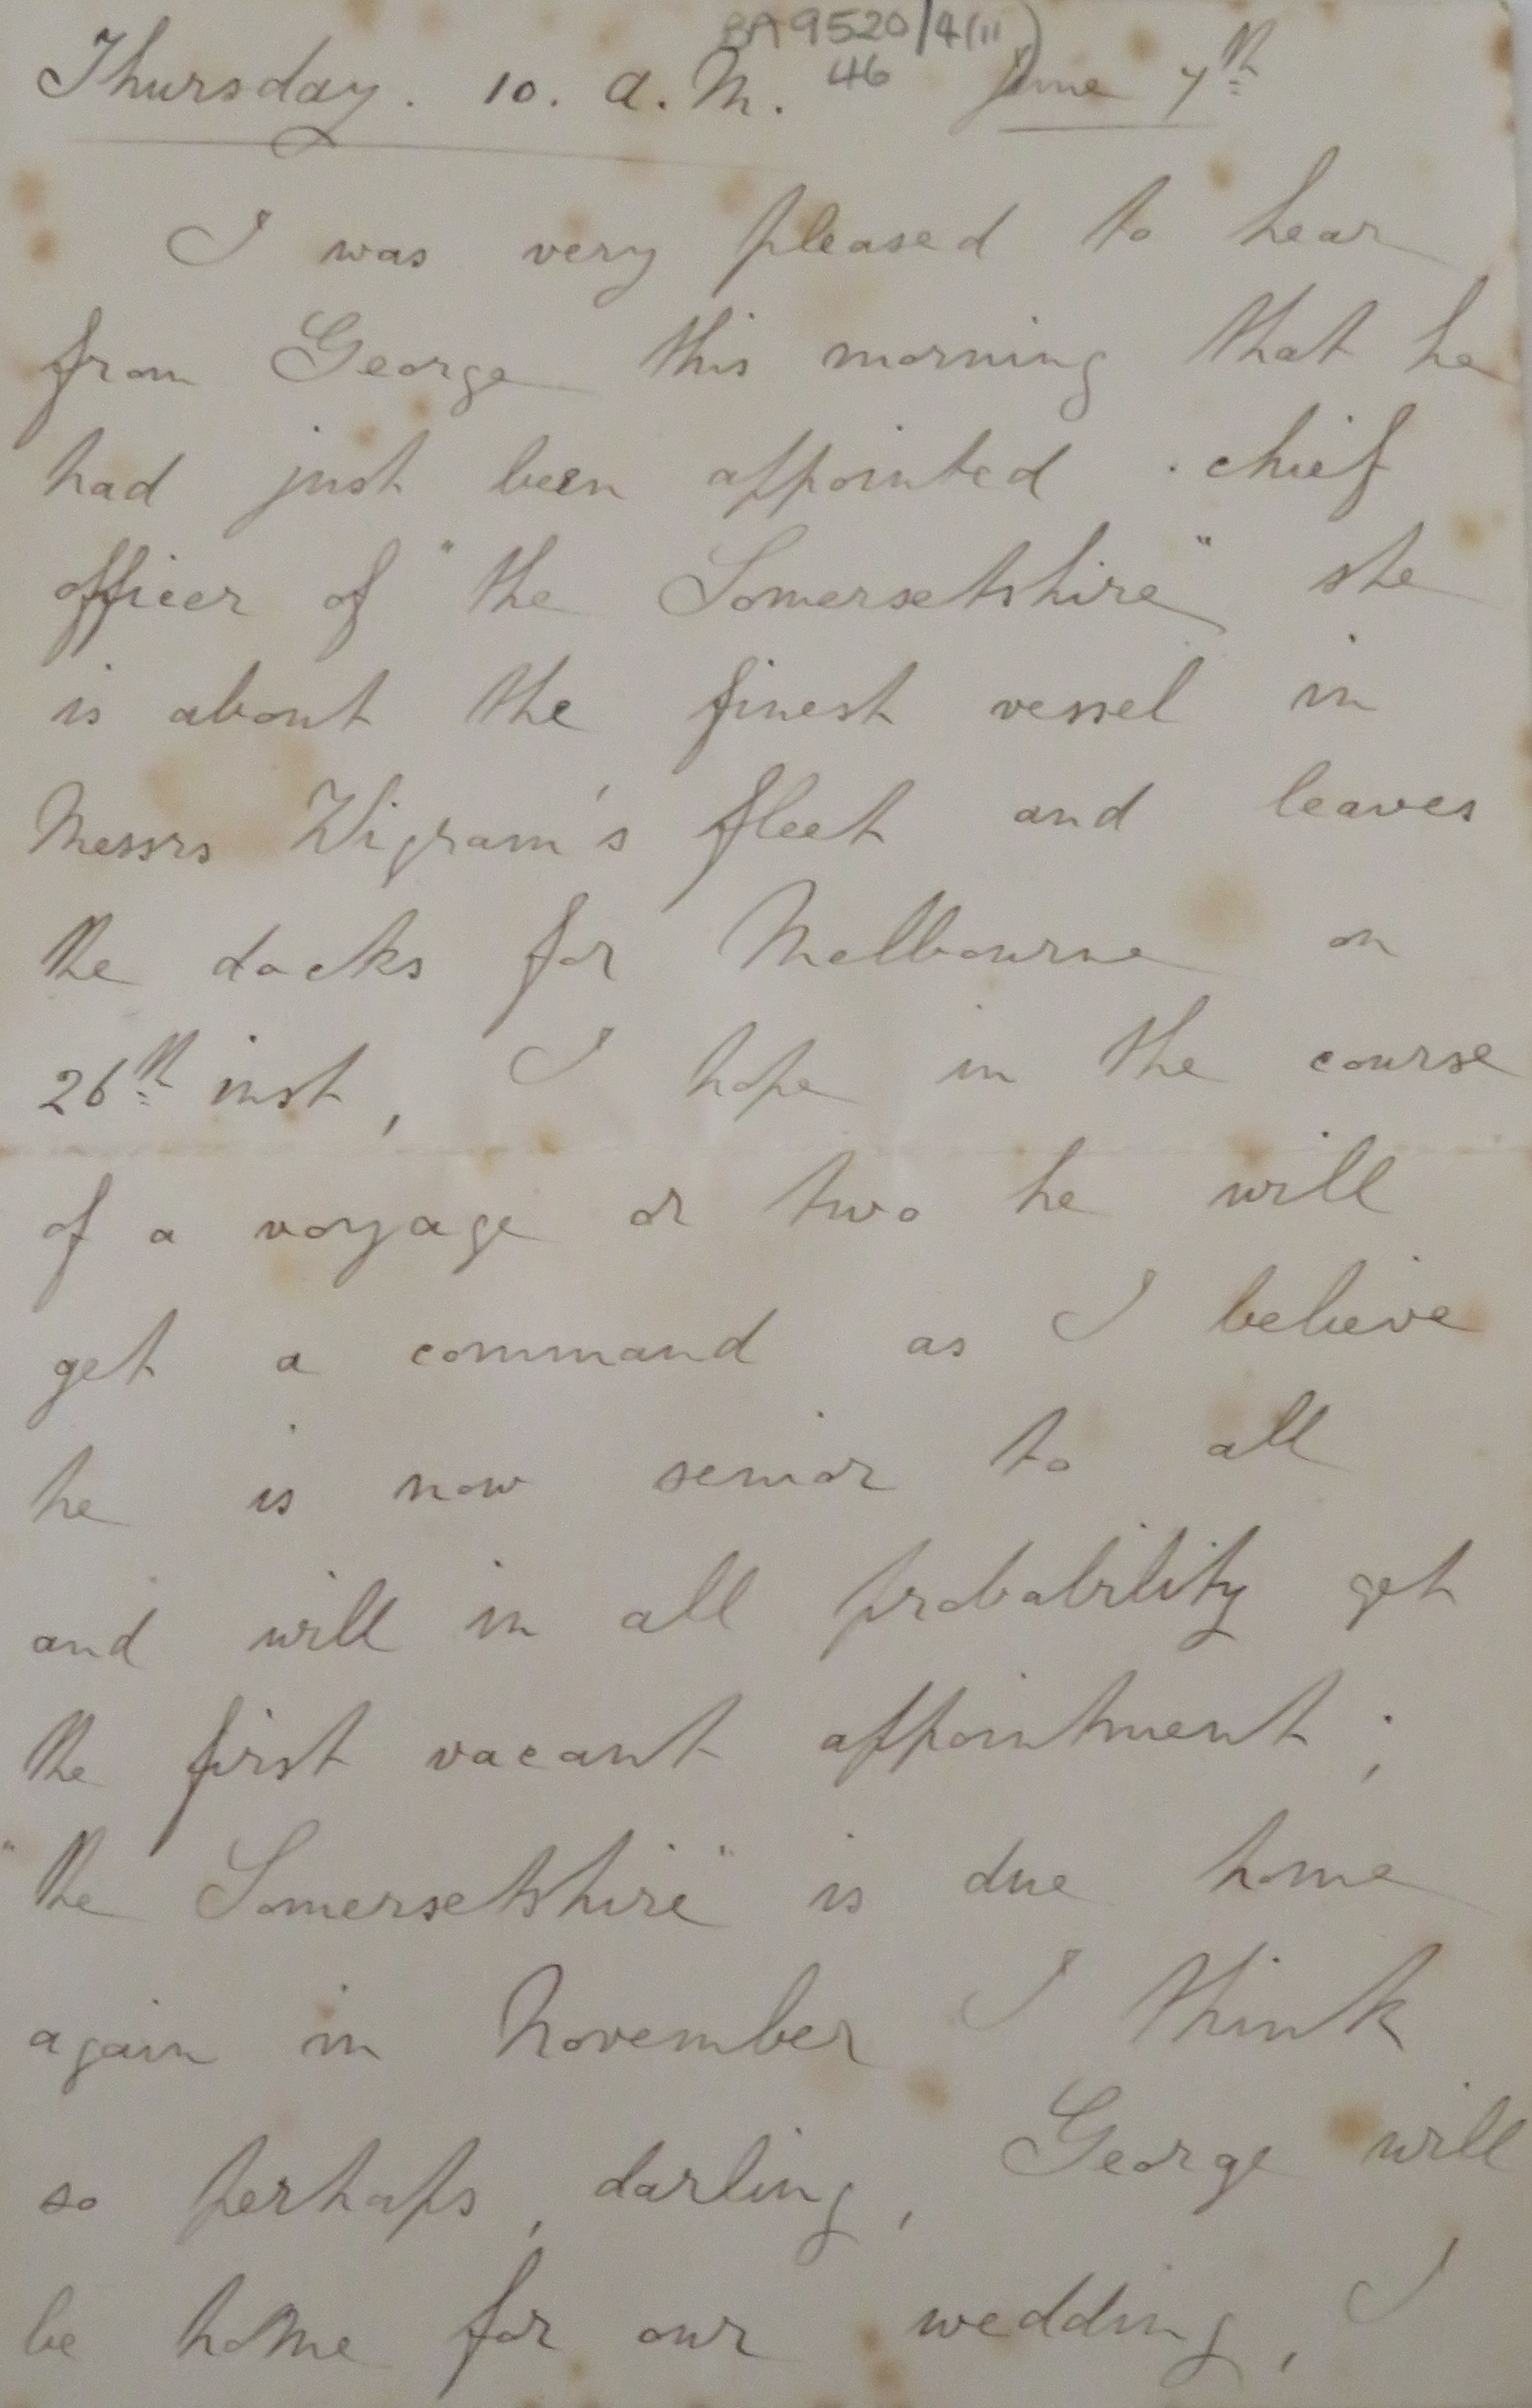 BA9520/4(11)
46
Thursday. 10. a.m. June 7th
I was very pleased to hear
from George this morning that he
had just been appointed chief
officer of "the Somersetshire" she
is about the finest vessel in
Messrs Wigram's fleet and leaves
the docks for Melbourne on
26th inst, I hope in the course
of a voyage or two he will
get a command as I believe
he is now senior to all
and will in all probability get
the first vacant appointment;
"the Somersetshire" is due home
again in November I think
so perhaps, darling, George will
be home for our wedding, I